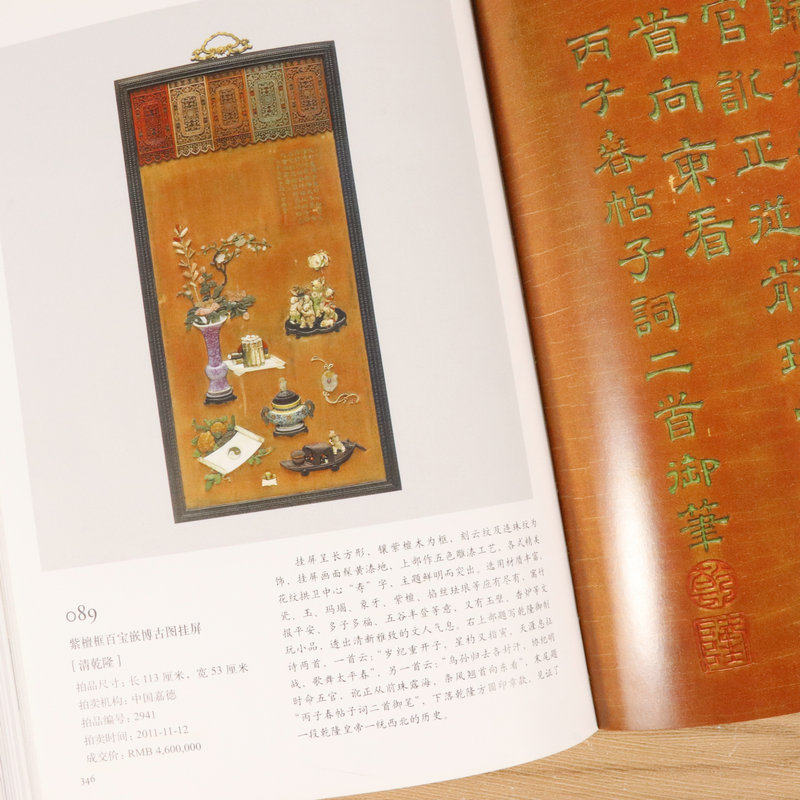 089
紫檀框百宝嵌博古图挂屏
[清乾隆]
拍品尺寸：长 113 厘米，宽 53 厘米
拍卖机构：中国嘉德
拍品编号：2941
拍卖时间：2011-11-12
成交价：RMB 4,600,000
346
挂屏呈长方形、镶紫檀木为框，刻云纹及连珠纹为
饰，挂屏画面髹黄漆地，上部作五色雕漆工艺，各式精美
花纹拱卫中心“寿”字，主题鲜明而突出。选用材质丰富，
瓷、玉、玛瑙、象牙、紫檀、掐丝珐琅等应有尽有，富竹
报平安、多子多福、五谷丰登等意，又有玉璧、香炉等文
玩小品，透出清新雅致的文人气息。右上部题写乾隆御制
诗两首，一首云：“岁纪重开子，星杓又指寅，天涯息征
战，歌舞太平春”，另一首云：“乌孙归去各封汗，始纪明
时命五官，讹正从前珠露海，条风翘首向东看”，末尾题
“丙子春帖子词二首御笔”，下落乾隆方圆印章款，见证了
一段乾隆皇帝一统西北的历史。
官訛正從前珠
首向東看
丙子春帖子詞二首御筆